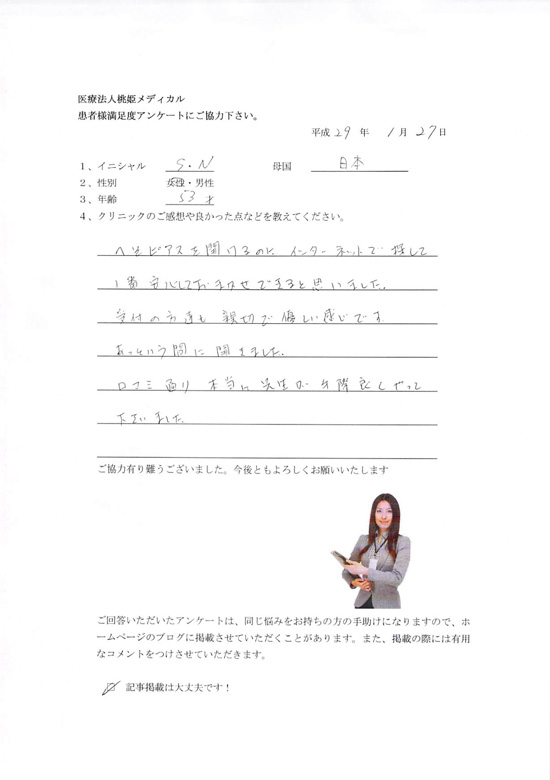 医療法人桃姫メディカル
患者様満足度アンケートにご協力下さい。
平成 29 年 1 月 27 日
1、イニシャル S・N 母国 日本
2、性別 女性・男性
3、年齢 53才
4、クリニックのご感想や良かった点などを教えてください。
へそピアスを開けるのに インターネットで 探して
1番 安心しておまかせできると思いました。
受付の方達も 親切で優しい感じです
あっという間に 開きました。
口コミ通り 本当に 先生が 手際良くやって
下さいました
ご協力有り難うございました。今後ともよろしくお願いいたします
ご回答いただいたアンケートは、同じ悩みをお持ちの方の手助けになりますので、ホ
ームページのブログに掲載させていただくことがあります。また、掲載の際には有用
なコメントをつけさせていただきます。
☑ 記事掲載は大丈夫です！